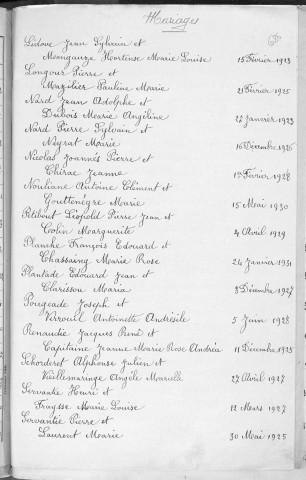 Mariages
Ladove Jean Sylvain et
Mongauze Hortense Marie Louise 15 Février 1923
Longour Pierre et
Mazelier Pauline Marie 21 Février 1925
Nard Jean Adolphe et
Dubois Marie Angéline 22 Janvier 1923
Nard Pierre Sylvain et
Meyrat Marie 16 Décembre 1926
Nicolas Joannès Pierre et
Chirac Jeanne Février 1928
Nouliane Antoine Clément et
Gouttenègre Marie 15 Mai 1930
Petitbout Léopold Pierre Jean et
Colin Marguerite 4 Avril 1929
Planche François Edouard et
Chassaing Marie Rose 24 Janvier 1931
Plantade Edouard Jean et
Clarissou Maria 8 Décembre 1927
Pougeade Joseph et
Virouil Antoinette 5 Juin 1928
Renaudie Jacques René et
Capitaine Jeanne Marie Rose Andréa 11 Décembre 1925
Schorderet Alphonse Julien et
Vieillemaringe Angèle Marcelle 27 Avril 1927
Servantie Henri et
Fraysse Marie Louise 12 Mars 1927
Servantie Pierre et
Laurent Marie 30 Mai 1925